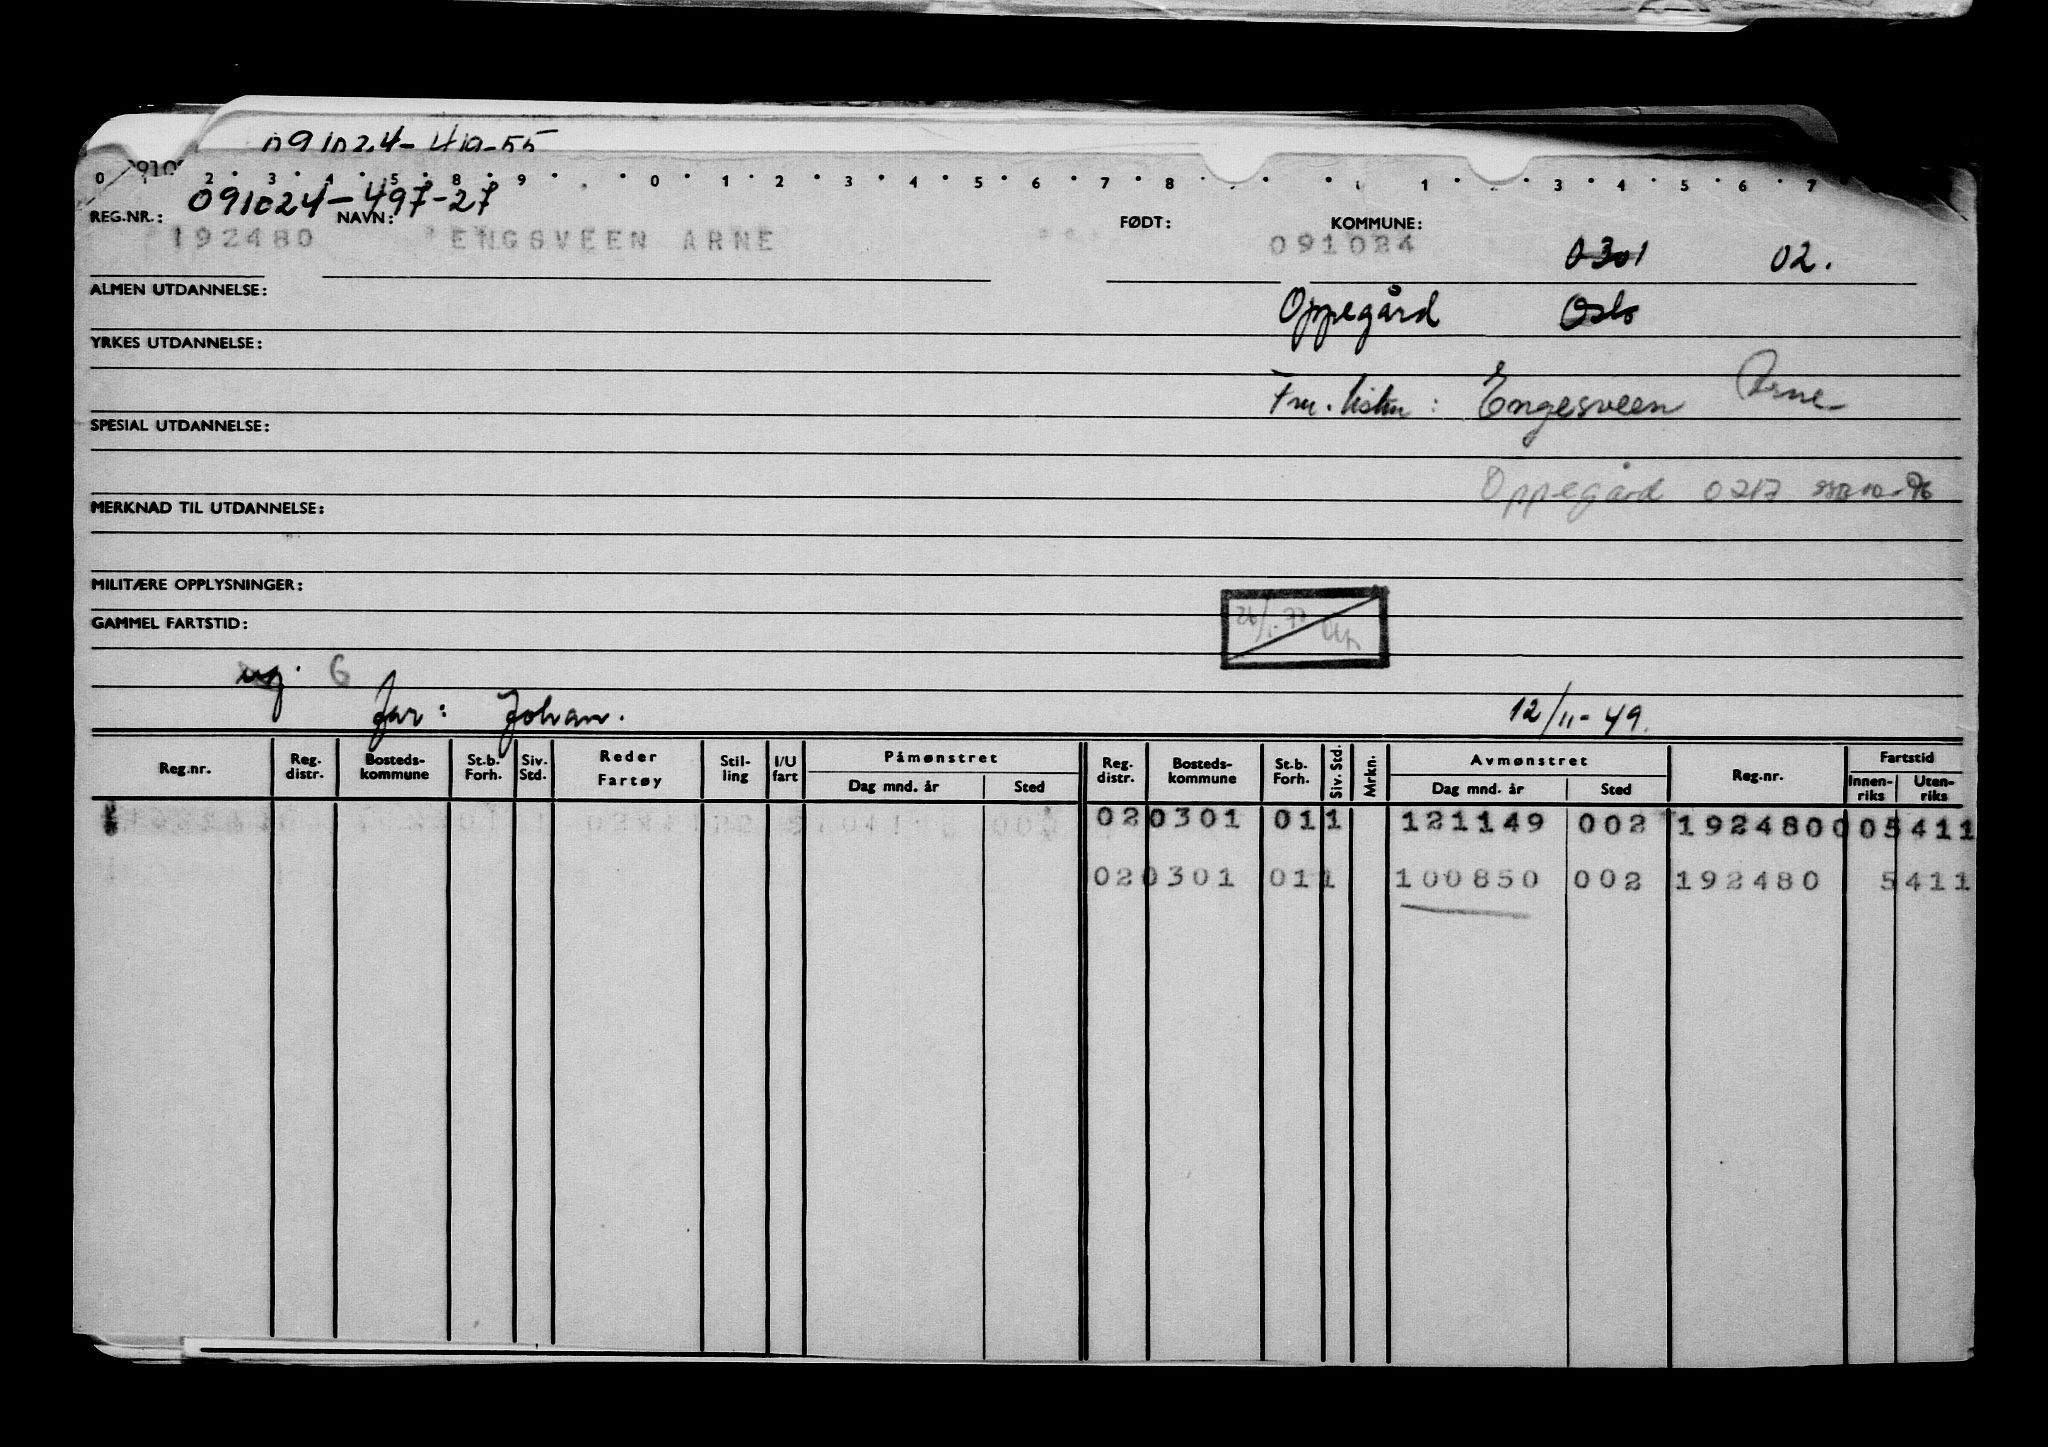 091024-410-55
0 1 2 3 4 5 8 9 0 1 2 3 4 5 6 7 8 1 3 4 5 6 7
091024-497-27
REG.NR.: NAVN: FØDT: KOMMUNE:
192480 ENGSVEEN ARNE 091024
0301 02.
ALMEN UTDANNELSE:
Oppegård Oslo
YRKES UTDANNELSE:
: Engesveen Arne
SPESIAL UTDANNELSE:
Oppegård 0217
MERKNAD TIL UTDANNELSE:
MILITÆRE OPPLYSNINGER:
GAMMEL FARTSTID:
G
far: Johan. 12/11-49.
Reg.nr. Reg. distr. Bosteds-kommune St.b. Forh. Siv. Std. Reder Fartøy Stil-ling I/U fart Påmønstret Dag mnd. år Sted Reg. distr. Bosteds-kommune St.b. Forh. Siv. Std. Mrkn. Avmønstret Dag mnd. år Sted Reg.nr. Fartstid Innen-riks Uten-riks
020301 011 121149 002 1924800 05411
020301 011 100850 002 192480 5411